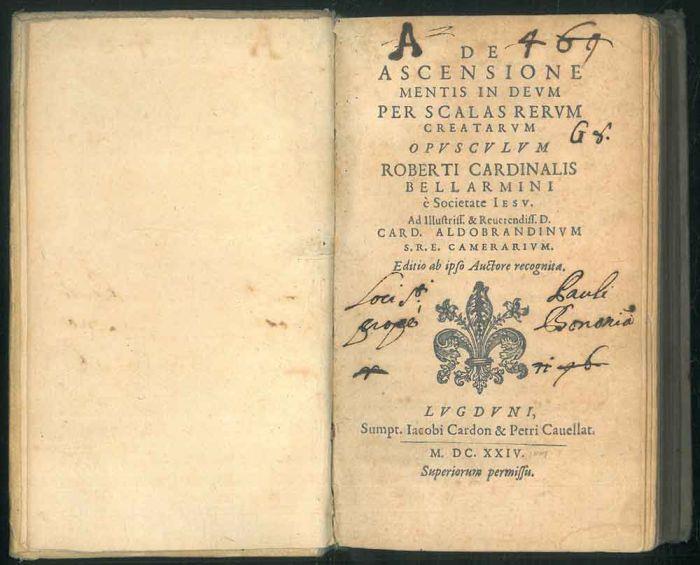 A
DE
4 69
ASCENSIONE
MENTIS IN DEVM
PER SCALAS RERVM
CREATARVM
G 8.
OPVSCVLVM
ROBERTI CARDINALIS
BELLARMINI
è Societate IESV.
Ad Illustriss. & Reuerendiss. D.
CARD. ALDOBRANDINVM
S.R.E. CAMERARIVM.
Editio ab ipso Auctore recognita.
Loci
Pauli
LVGDVNI,
Sumpt. Iacobi Cardon & Petri Cauellat.
M. DC. XXIV.
Superiorum permissu.